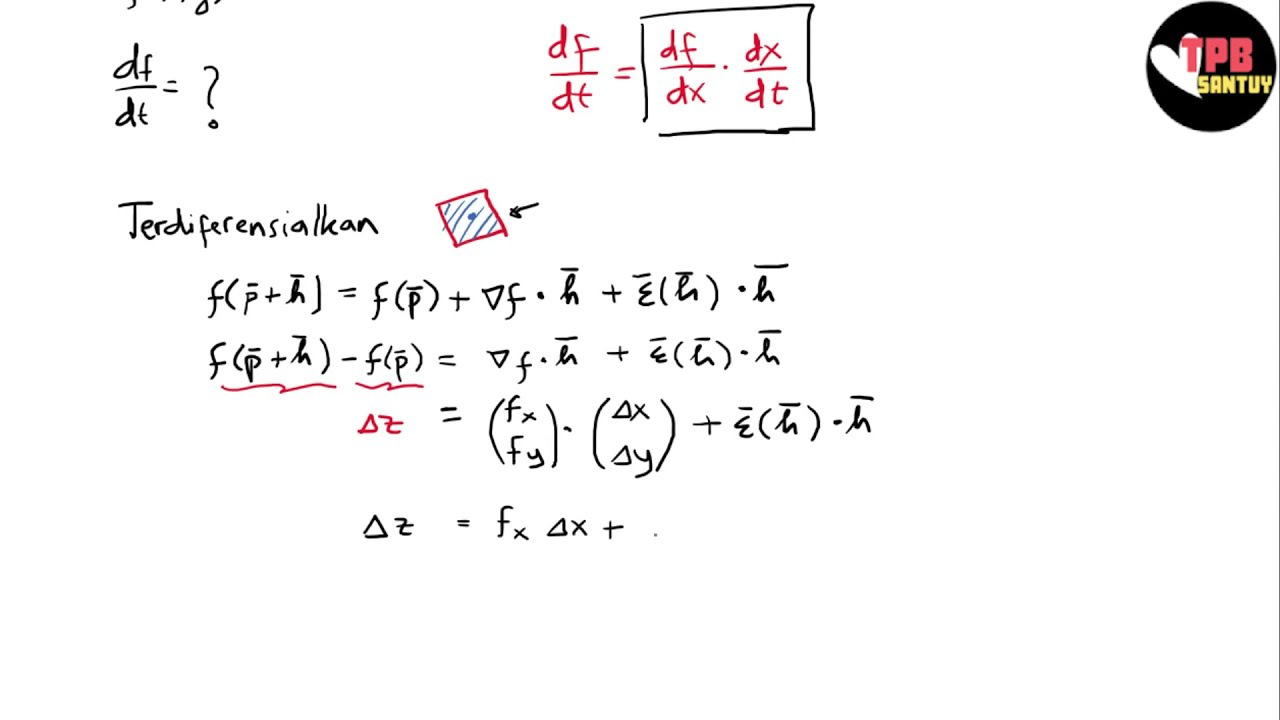 df/dt = ?
df/dt = df/dx · dx/dt
TPB
SANTUY
Terdiferensialkan
f(p̄ + h̄) = f(p̄) + ∇f · h̄ + ε̄(h̄) · h̄
f(p̄ + h̄) − f(p̄) = ∇f · h̄ + ε̄(h̄) · h̄
Δz = (fx fy) · (Δx Δy) + ε̄(h̄) · h̄
Δz = fx Δx +